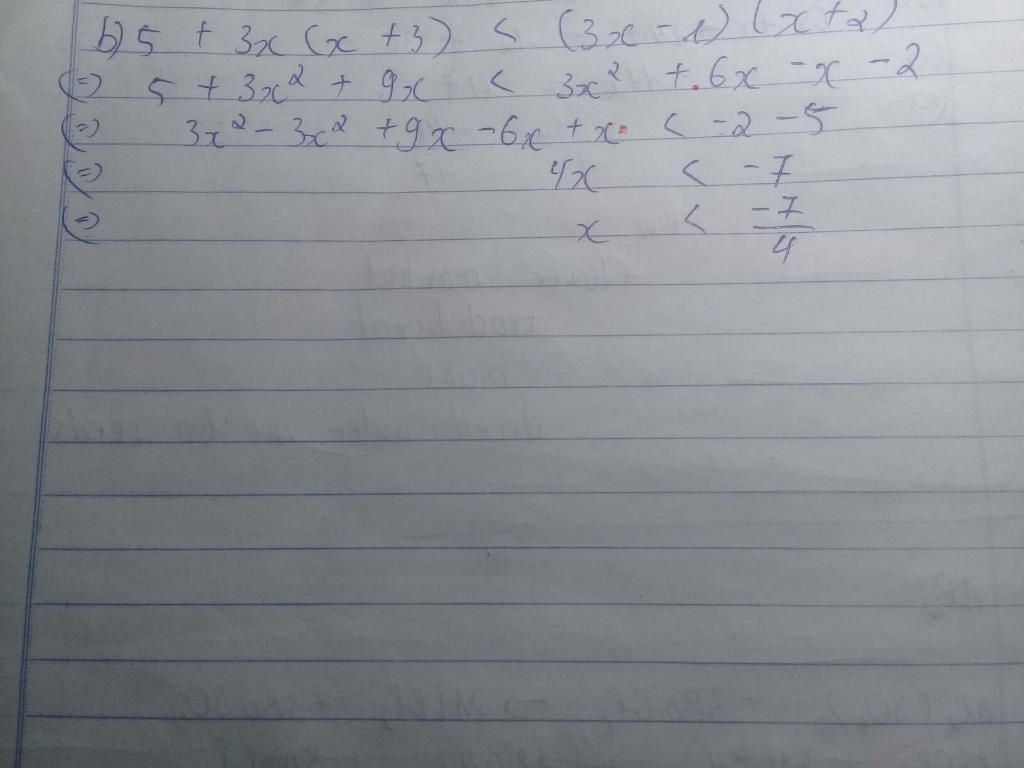 b) 5 + 3x (x + 3) < (3x - 1) (x + 2)
(=) 5 + 3x² + 9x < 3x² + 6x - x - 2
(=) 3x² - 3x² + 9x - 6x + x < -2 - 5
(=) 4x < -7
(=) x < -7/4